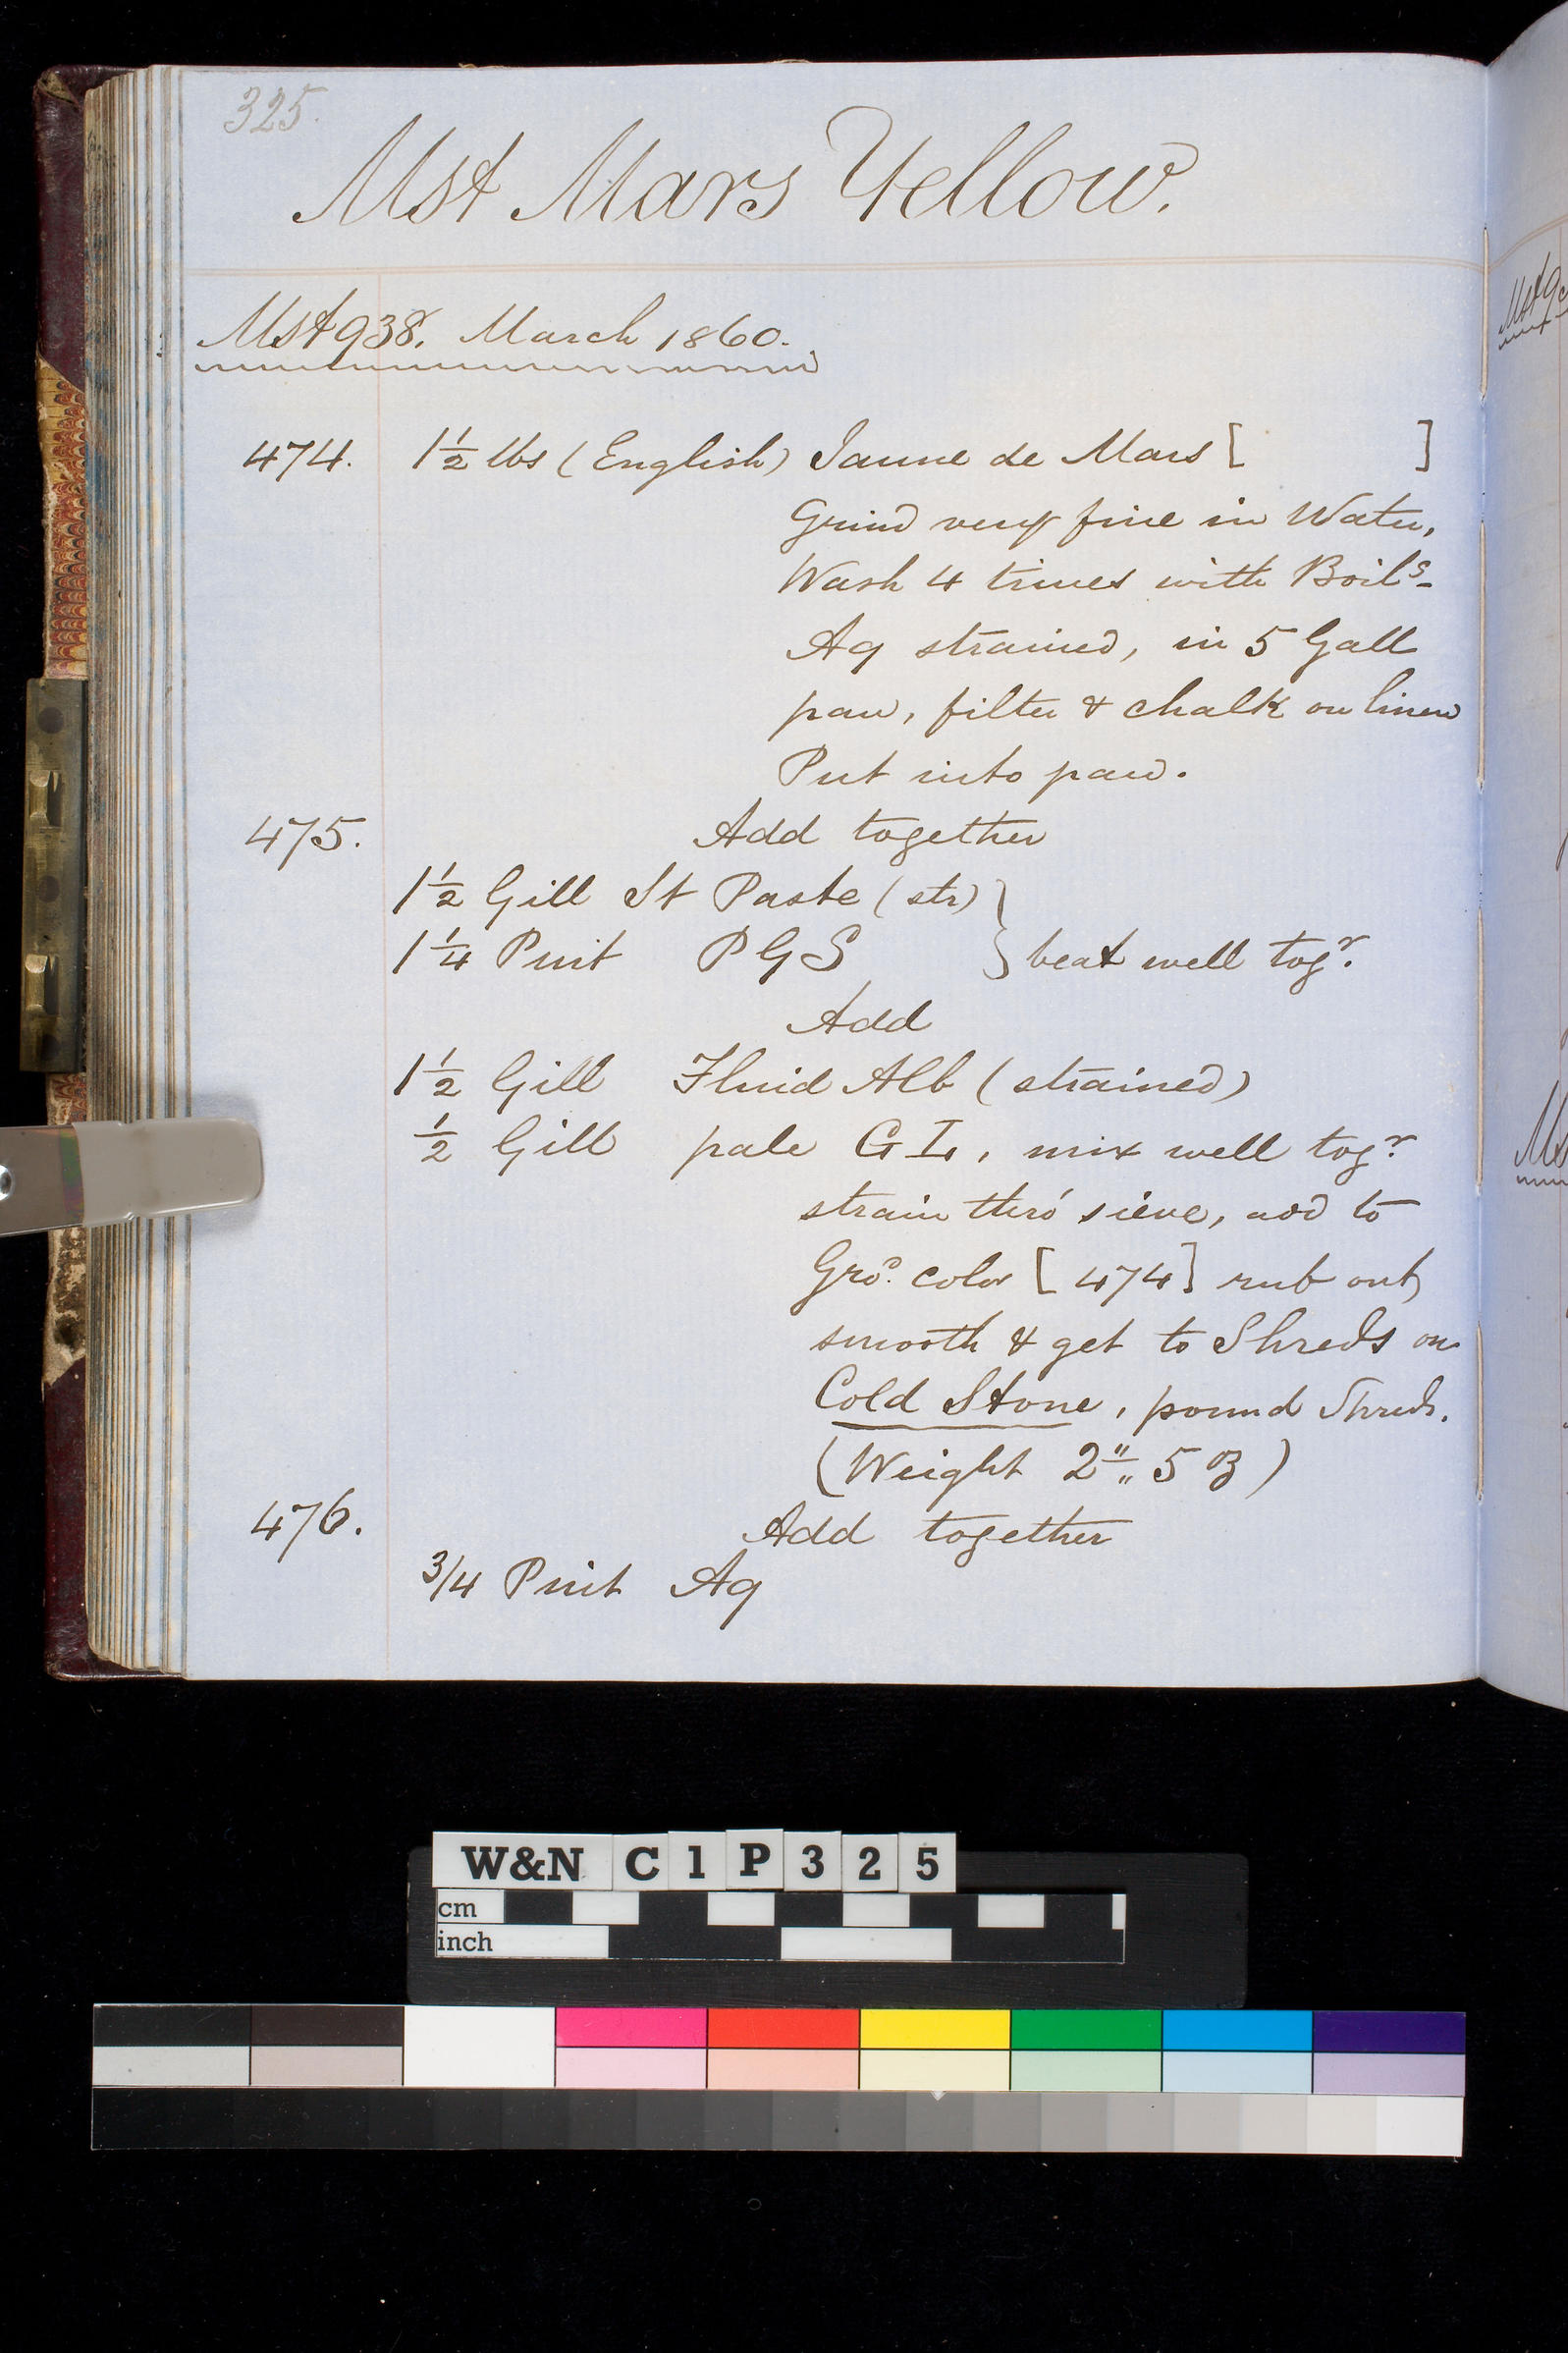 325.
Mst Mars Yellow.
Mst 938. March 1860.
474. 1½ lbs (English) Jaune de Mars [ ]
Grind very fine in Water,
Wash 4 times with Boilg
Aq strained, in 5 Gall
pan, filter & chalk on linen
Put into pan.
475. Add together
1½ Gill St Paste (str) }
1¼ Pint P G S } beat well togr.
Add
1½ Gill Fluid Alb (strained)
½ Gill pale G L, mix well togr.
strain thro' sieve, add to
Gro. color [474] rub out
smooth & get to Shreds on
Cold Stone, pound Shreds.
(Weight 2 " 5 oz)
476. Add together
3/4 Pint Aq
W&N C1P325
cm
inch